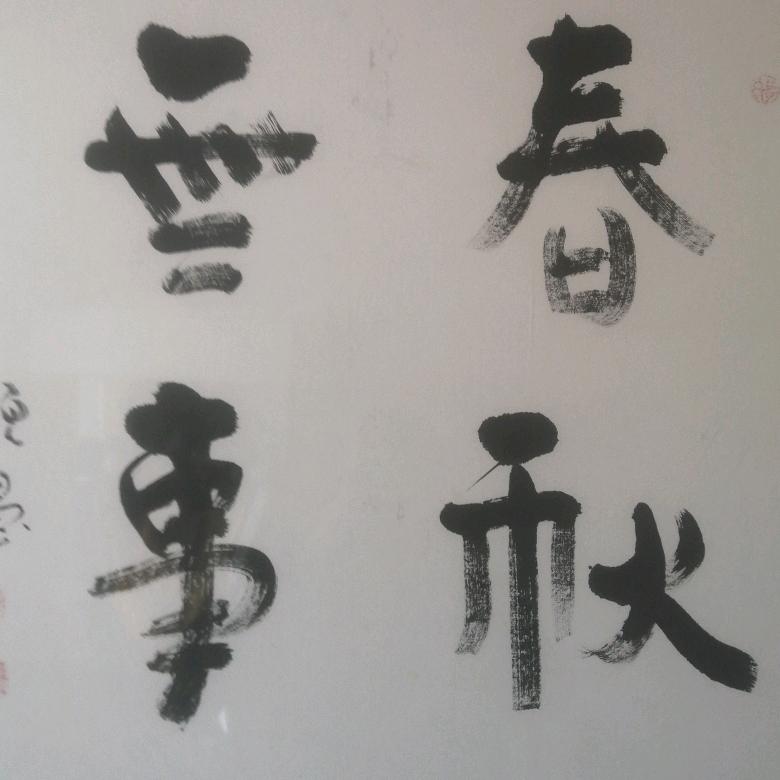 春秋
無事